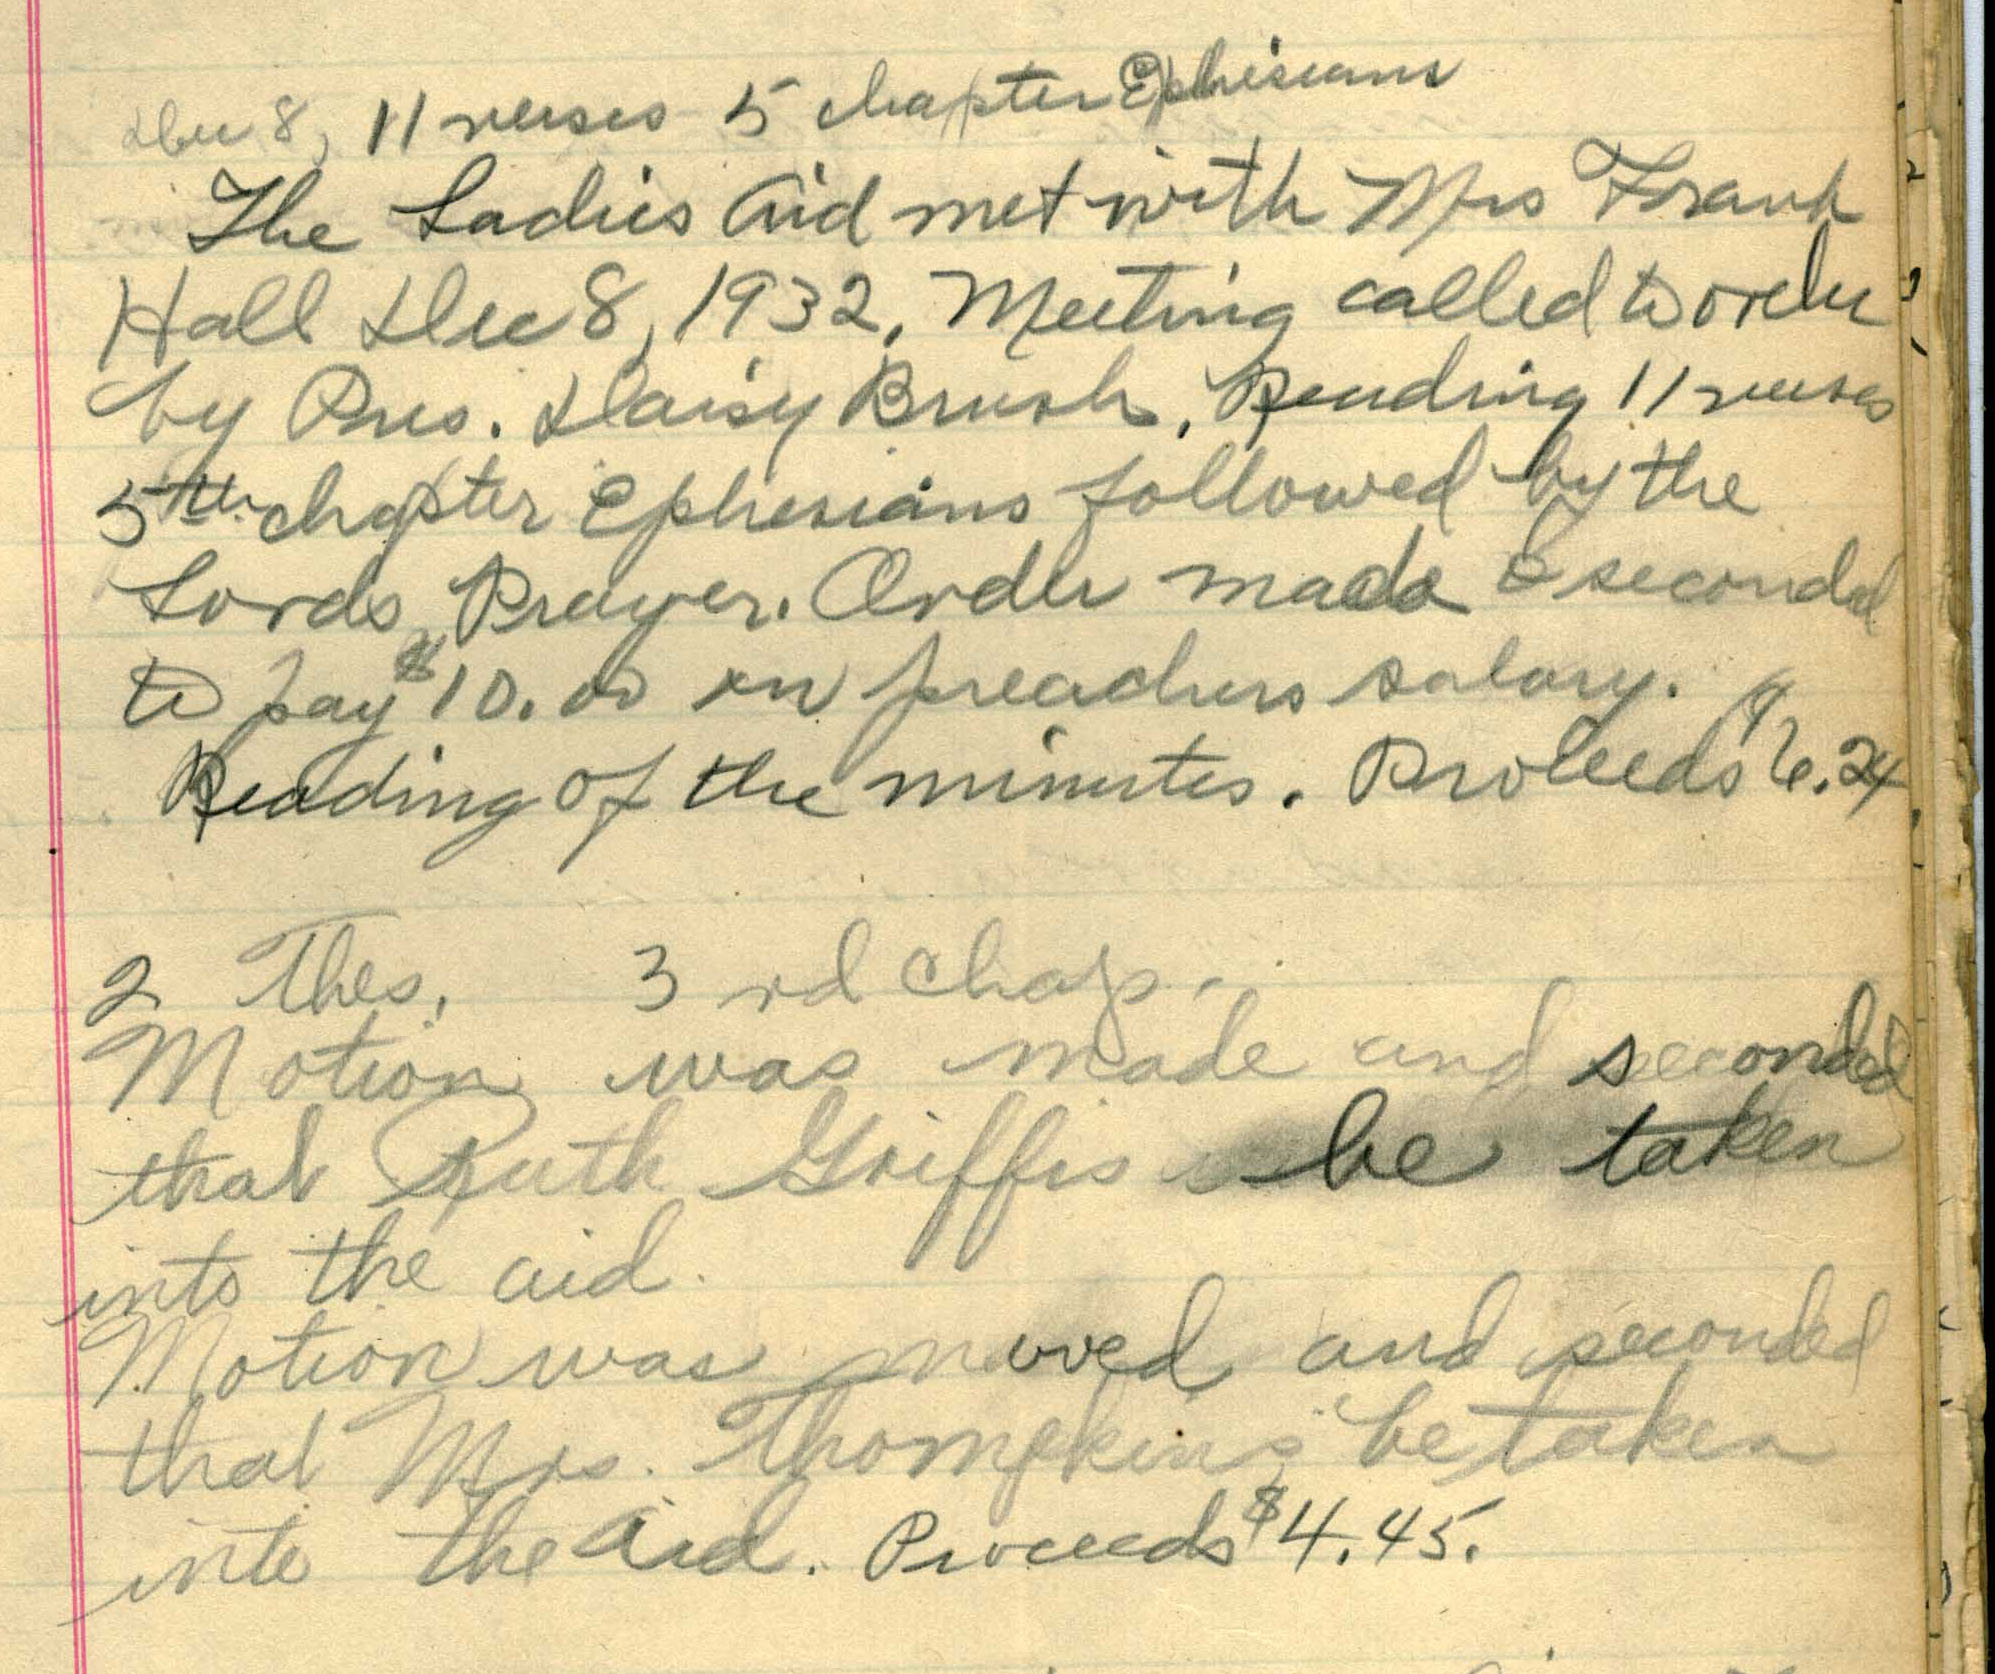 Dec 8, 11 verses 5 chapter Ephisians
The Ladies Aid met with Mrs Frank
Hall Dec 8, 1932. Meeting called to order
by Pres. Daisy Brush. Reading 11 verses
5th chapter Ephesians followed by the
Lords Prayer. Order made & seconded
to pay $10.00 on preachers salary.
Reading of the minutes. Proceeds $6.24
2 Thes. 3rd Chap.
Motion was made and seconded
that Ruth Griffis be taken
into the aid.
Motion was moved and seconded
that Mrs. Thompkins be taken
into the aid. Proceeds $4.45.